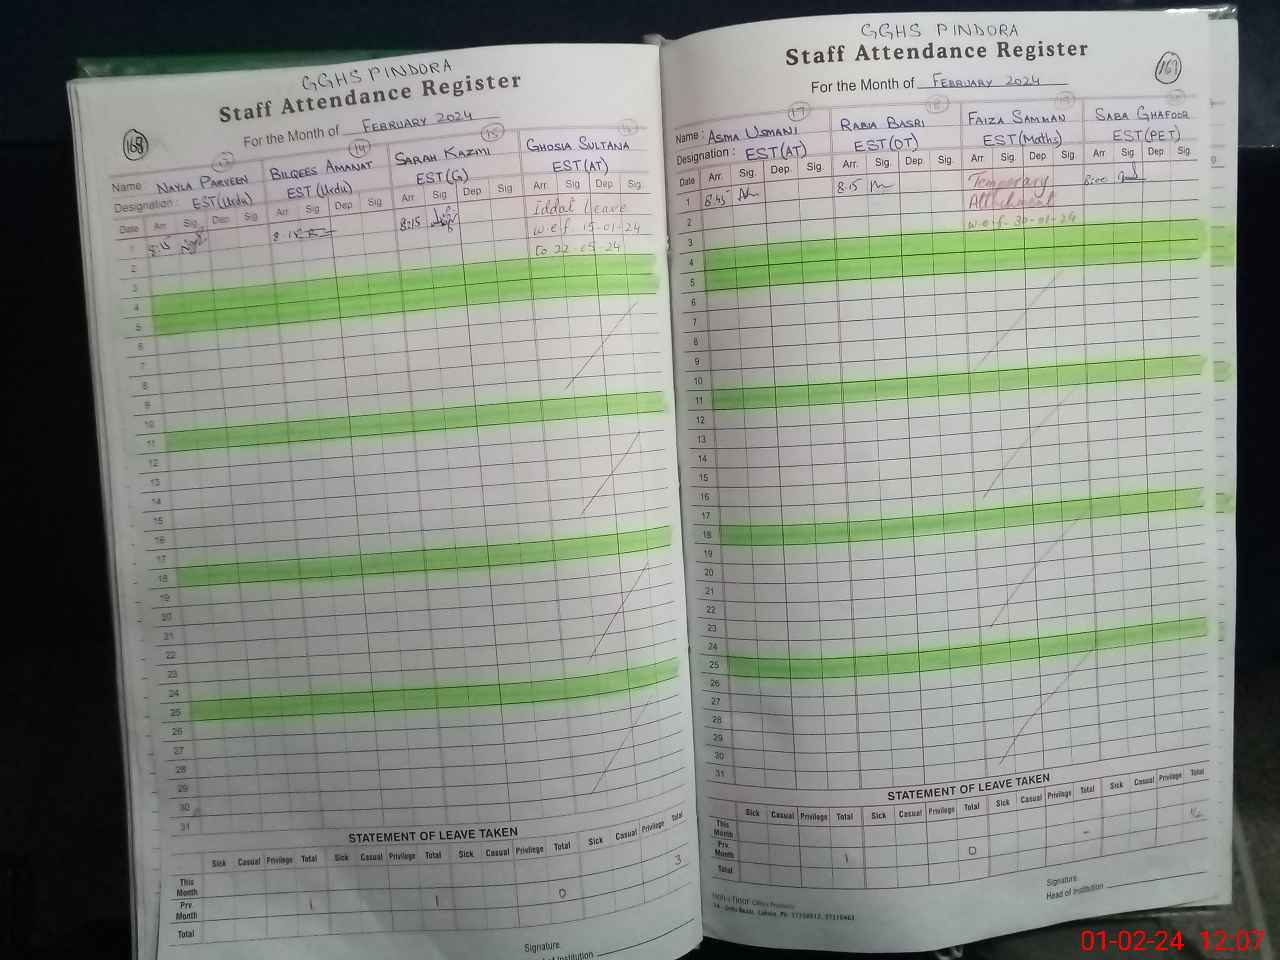 GGHS PINDORA
Staff Attendance Register
168
For the Month of FEBRUARY 2024
13 14 15 16
Name NAYLA PARVEEN BILQEES AMANAT SARAH KAZMI GHOSIA SULTANA
Designation: EST(Urdu) EST(Urdu) EST(G) EST(AT)
Date Arr Sig Dep Sig Arr Sig Dep Sig Arr Sig Dep Sig Arr Sig Dep Sig
1 8:15 8:15 8:15 Iddat Leave
2 w.e.f. 15-01-24
3 to 22-05-24
4
5
6
7
8
9
10
11
12
13
14
15
16
17
18
19
20
21
22
23
24
25
26
27
28
29
30
31
STATEMENT OF LEAVE TAKEN
Sick Casual Privilege Total Sick Casual Privilege Total Sick Casual Privilege Total Sick Casual Privilege Total
This Month
Prv. Month 1 1 0 3
Total
Signature
Head of Institution
GGHS PINDORA
Staff Attendance Register
167
For the Month of FEBRUARY 2024
17 18 19 20
Name: ASMA USMANI RABIA BASRI FAIZA SAMMAN SABA GHAFOOR
Designation: EST(AT) EST(OT) EST(Maths) EST(PET)
Date Arr. Sig. Dep. Sig. Arr. Sig. Dep. Sig. Arr. Sig. Dep. Sig. Arr. Sig. Dep. Sig.
1 8:45 8:15 Temporary 8:00
2 Attachment
3 w.e.f. 30-01-24
4
5
6
7
8
9
10
11
12
13
14
15
16
17
18
19
20
21
22
23
24
25
26
27
28
29
30
31
STATEMENT OF LEAVE TAKEN
Sick Casual Privilege Total Sick Casual Privilege Total Sick Casual Privilege Total Sick Casual Privilege Total
This Month
Prv. Month 1 0 - ½
Total
Signature
Head of Institution
14 - Urdu Bazar, Lahore.
01-02-24 12:07